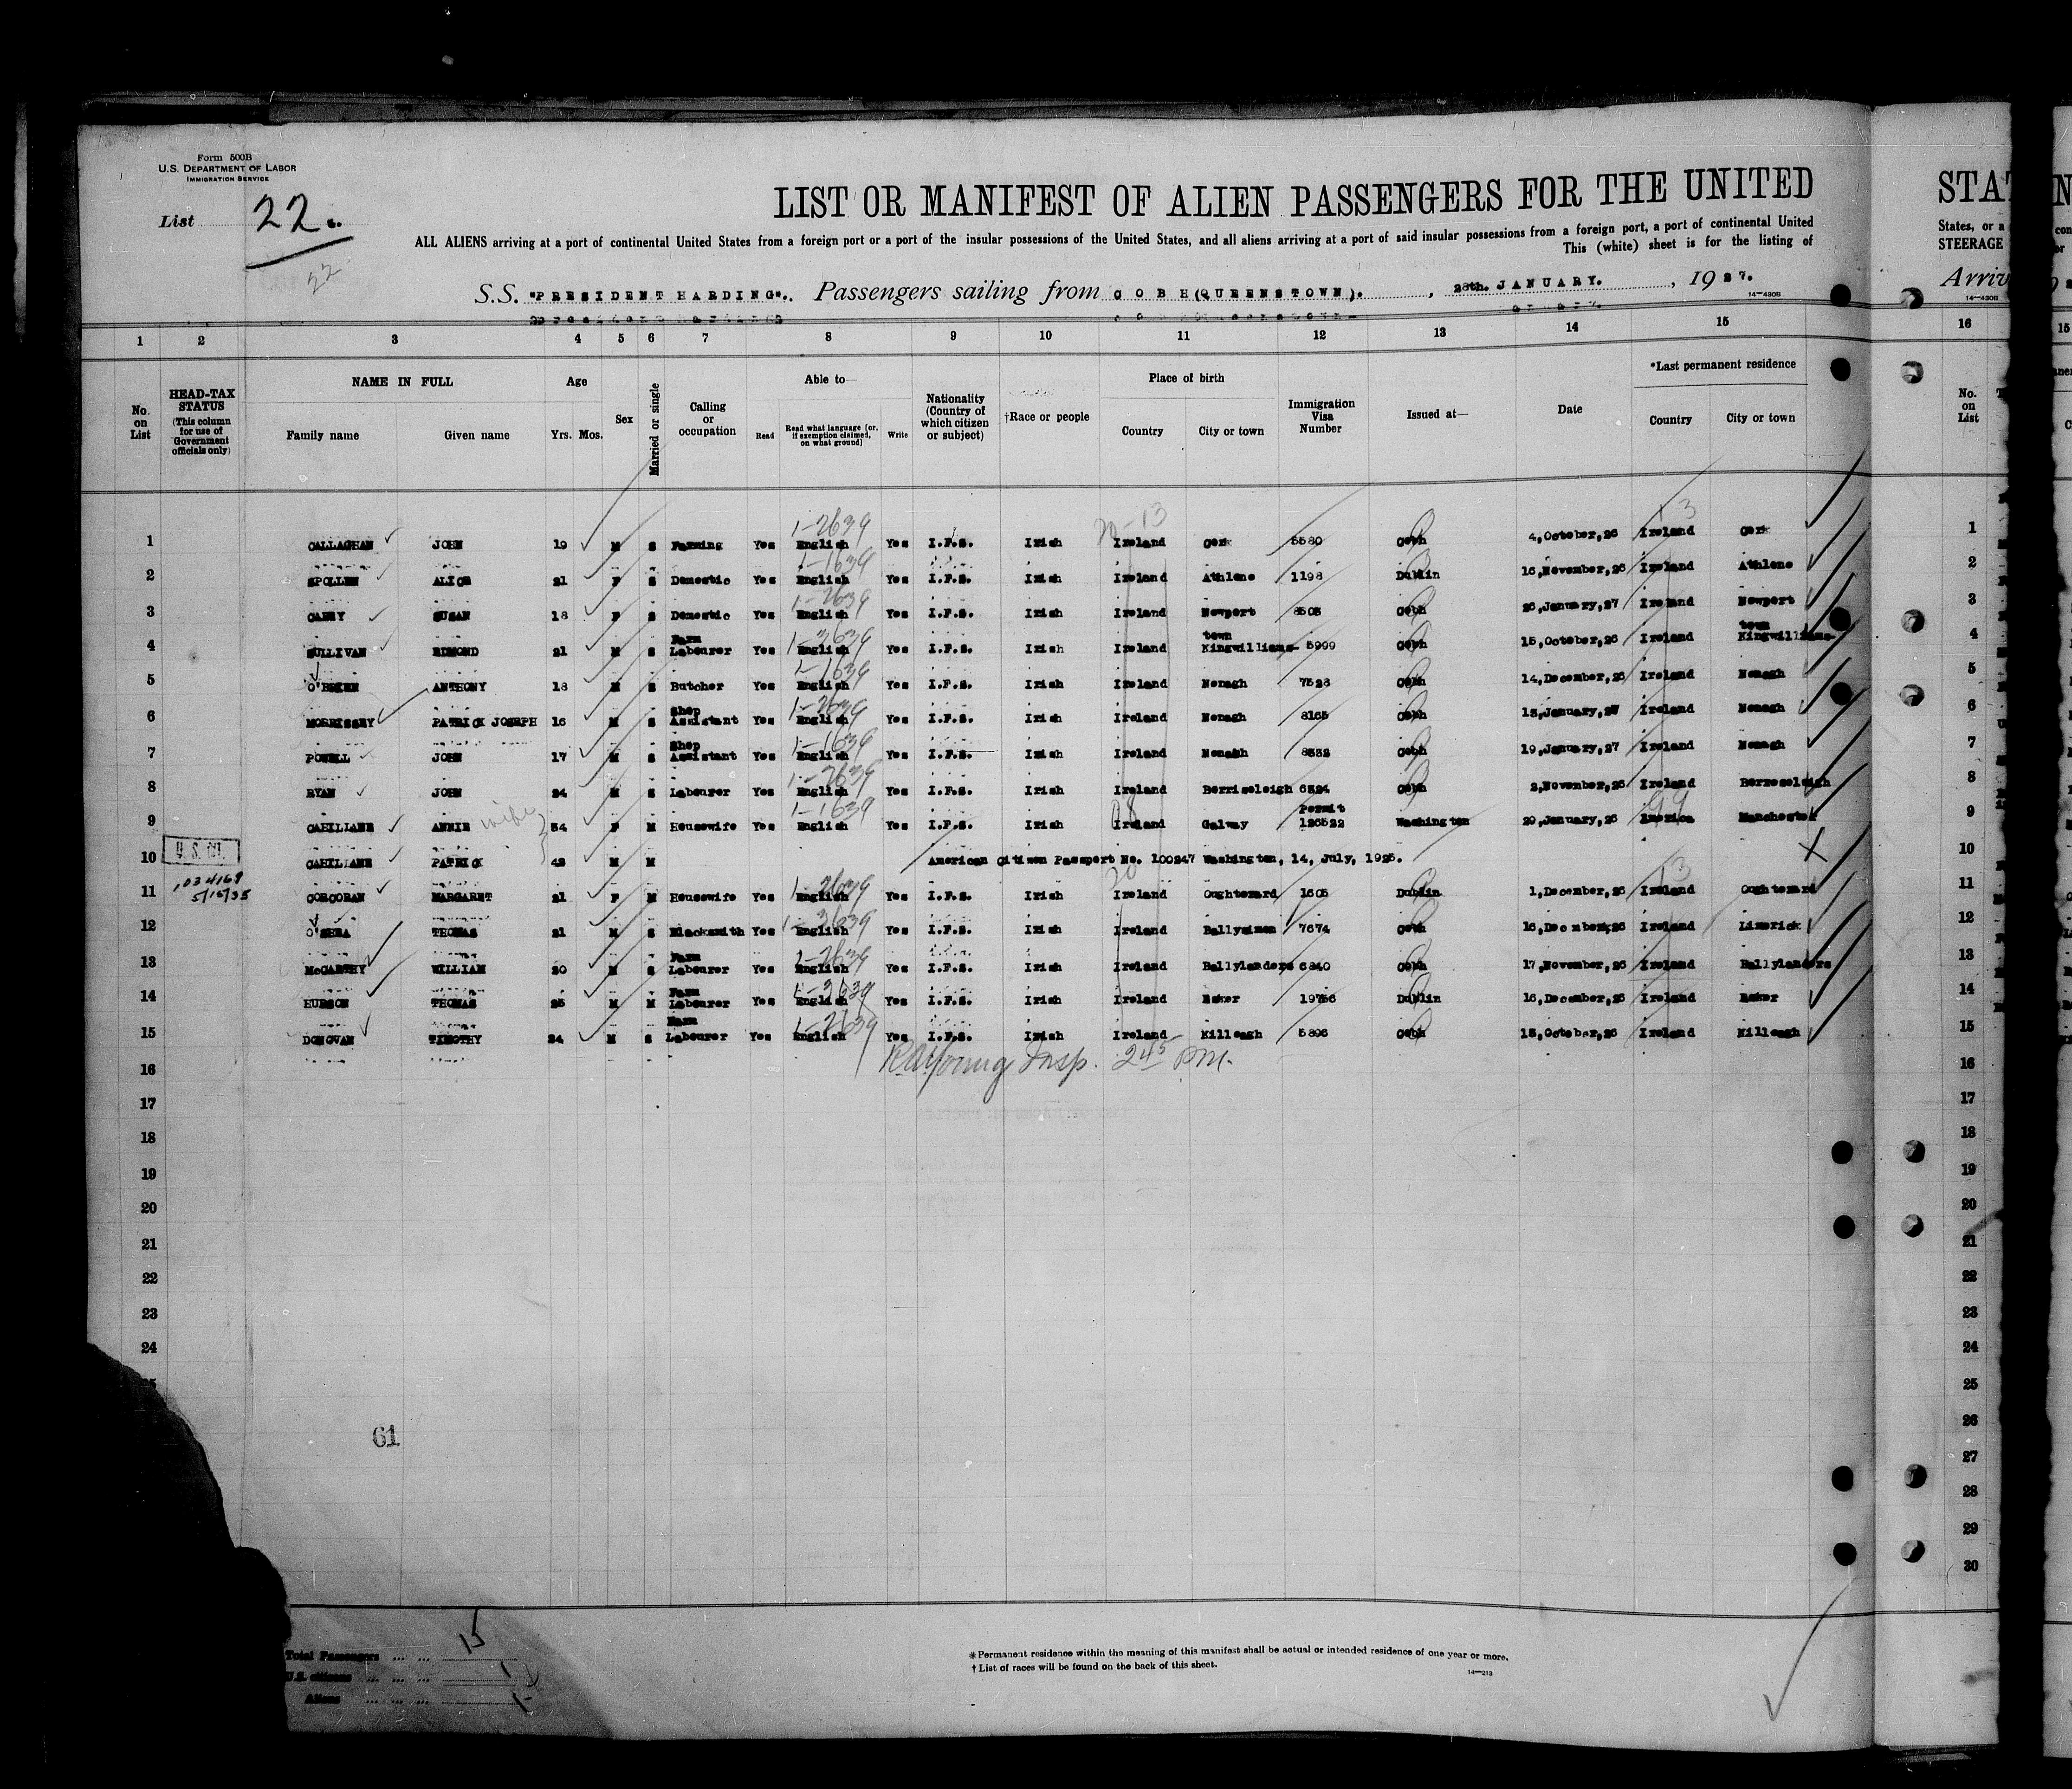 Form 500B
U.S. DEPARTMENT OF LABOR
IMMIGRATION SERVICE
List 22.
22
LIST OR MANIFEST OF ALIEN PASSENGERS FOR THE UNITED
ALL ALIENS arriving at a port of continental United States from a foreign port or a port of the insular possessions of the United States, and all aliens arriving at a port of said insular possessions from a foreign port, a port of continental United
This (white) sheet is for the listing of
S.S. "PRESIDENT HARDING". Passengers sailing from COBH (QUEENSTOWN). , 28th. JANUARY. , 1927.
14—430B
1 2 3 4 5 6 7 8 9 10 11 12 13 14 15
No. on List
HEAD-TAX STATUS (This column for use of Government officials only)
NAME IN FULL
Family name Given name
Age
Yrs. Mos.
Sex
Married or single
Calling or occupation
Able to—
Read
Read what language (or, if exemption claimed, on what ground)
Write
Nationality (Country of which citizen or subject)
†Race or people
Place of birth
Country City or town
Immigration Visa Number
Issued at—
Date
*Last permanent residence
Country City or town
1 CALLAGHAN JOHN 19 M S Farming Yes English Yes I.F.S. Irish Ireland Cork 5580 Cobh 4,October,26 Ireland Cork
2 SPOLLEN ALICE 21 F S Domestic Yes English Yes I.F.S. Irish Ireland Athlone 1198 Dublin 16,November,26 Ireland Athlone
3 CAREY SUSAN 18 F S Domestic Yes English Yes I.F.S. Irish Ireland Newport 8503 Cobh 26,January,27 Ireland Newport
4 SULLIVAN EDMOND 21 M S Farm Labourer Yes English Yes I.F.S. Irish Ireland Kingwilliams-town 5999 Cobh 15,October,26 Ireland Kingwilliams-town
5 O'BRIEN ANTHONY 18 M S Butcher Yes English Yes I.F.S. Irish Ireland Nenagh 7528 Cobh 14,December,26 Ireland Nenagh
6 MORRISSEY PATRICK JOSEPH 16 M S Shop Assistant Yes English Yes I.F.S. Irish Ireland Nenagh 8165 Cobh 13,January,27 Ireland Nenagh
7 POWELL JOHN 17 M S Shop Assistant Yes English Yes I.F.S. Irish Ireland Nenagh 8332 Cobh 19,January,27 Ireland Nenagh
8 RYAN JOHN 24 M S Labourer Yes English Yes I.F.S. Irish Ireland Borrisoleigh 6324 Cobh 2,November,26 Ireland
9 CAHILLANE ANNIE wife 34 F M Housewife Yes English Yes I.F.S. Irish Ireland Galway Permit 126522 Washington 20,January,26 America Manchester
U.S. CIT.
10 CAHILLANE PATRICK 42 M M American Citizen Passport No. 100247 Washington, 14, July, 1925.
1034169
5/15/35
11 CORCORAN MARGARET 21 F M Housewife Yes English Yes I.F.S. Irish Ireland Oughterard 1605 Dublin 1,December,26 Ireland Oughterard
12 O'SHEA THOMAS 21 M S Blacksmith Yes English Yes I.F.S. Irish Ireland Ballysimon 7674 Cobh 16,December,26 Ireland Limerick
13 McCARTHY WILLIAM 20 M S Farm Labourer Yes English Yes I.F.S. Irish Ireland Ballylanders 6840 Cobh 17,November,26 Ireland Ballylanders
14 HUDSON THOMAS 25 M M Farm Labourer Yes English Yes I.F.S. Irish Ireland 19756 Dublin 16,December,26 Ireland
15 DONOVAN TIMOTHY 24 M S Farm Labourer Yes English Yes I.F.S. Irish Ireland Killeagh 5896 Cobh 15,October,26 Ireland Killeagh
Young Insp. 2 45 P.M.
16
17
18
19
20
21
22
23
24
61
Total Passengers 15
U.S. citizens 1
Aliens
*Permanent residence within the meaning of this manifest shall be actual or intended residence of one year or more.
†List of races will be found on the back of this sheet.
14—213
STAT
States, or a
STEERAGE
Arriv
14—430B
16
No. on List
1
2
3
4
5
6
7
8
9
10
11
12
13
14
15
16
17
18
19
20
21
22
23
24
25
26
27
28
29
30